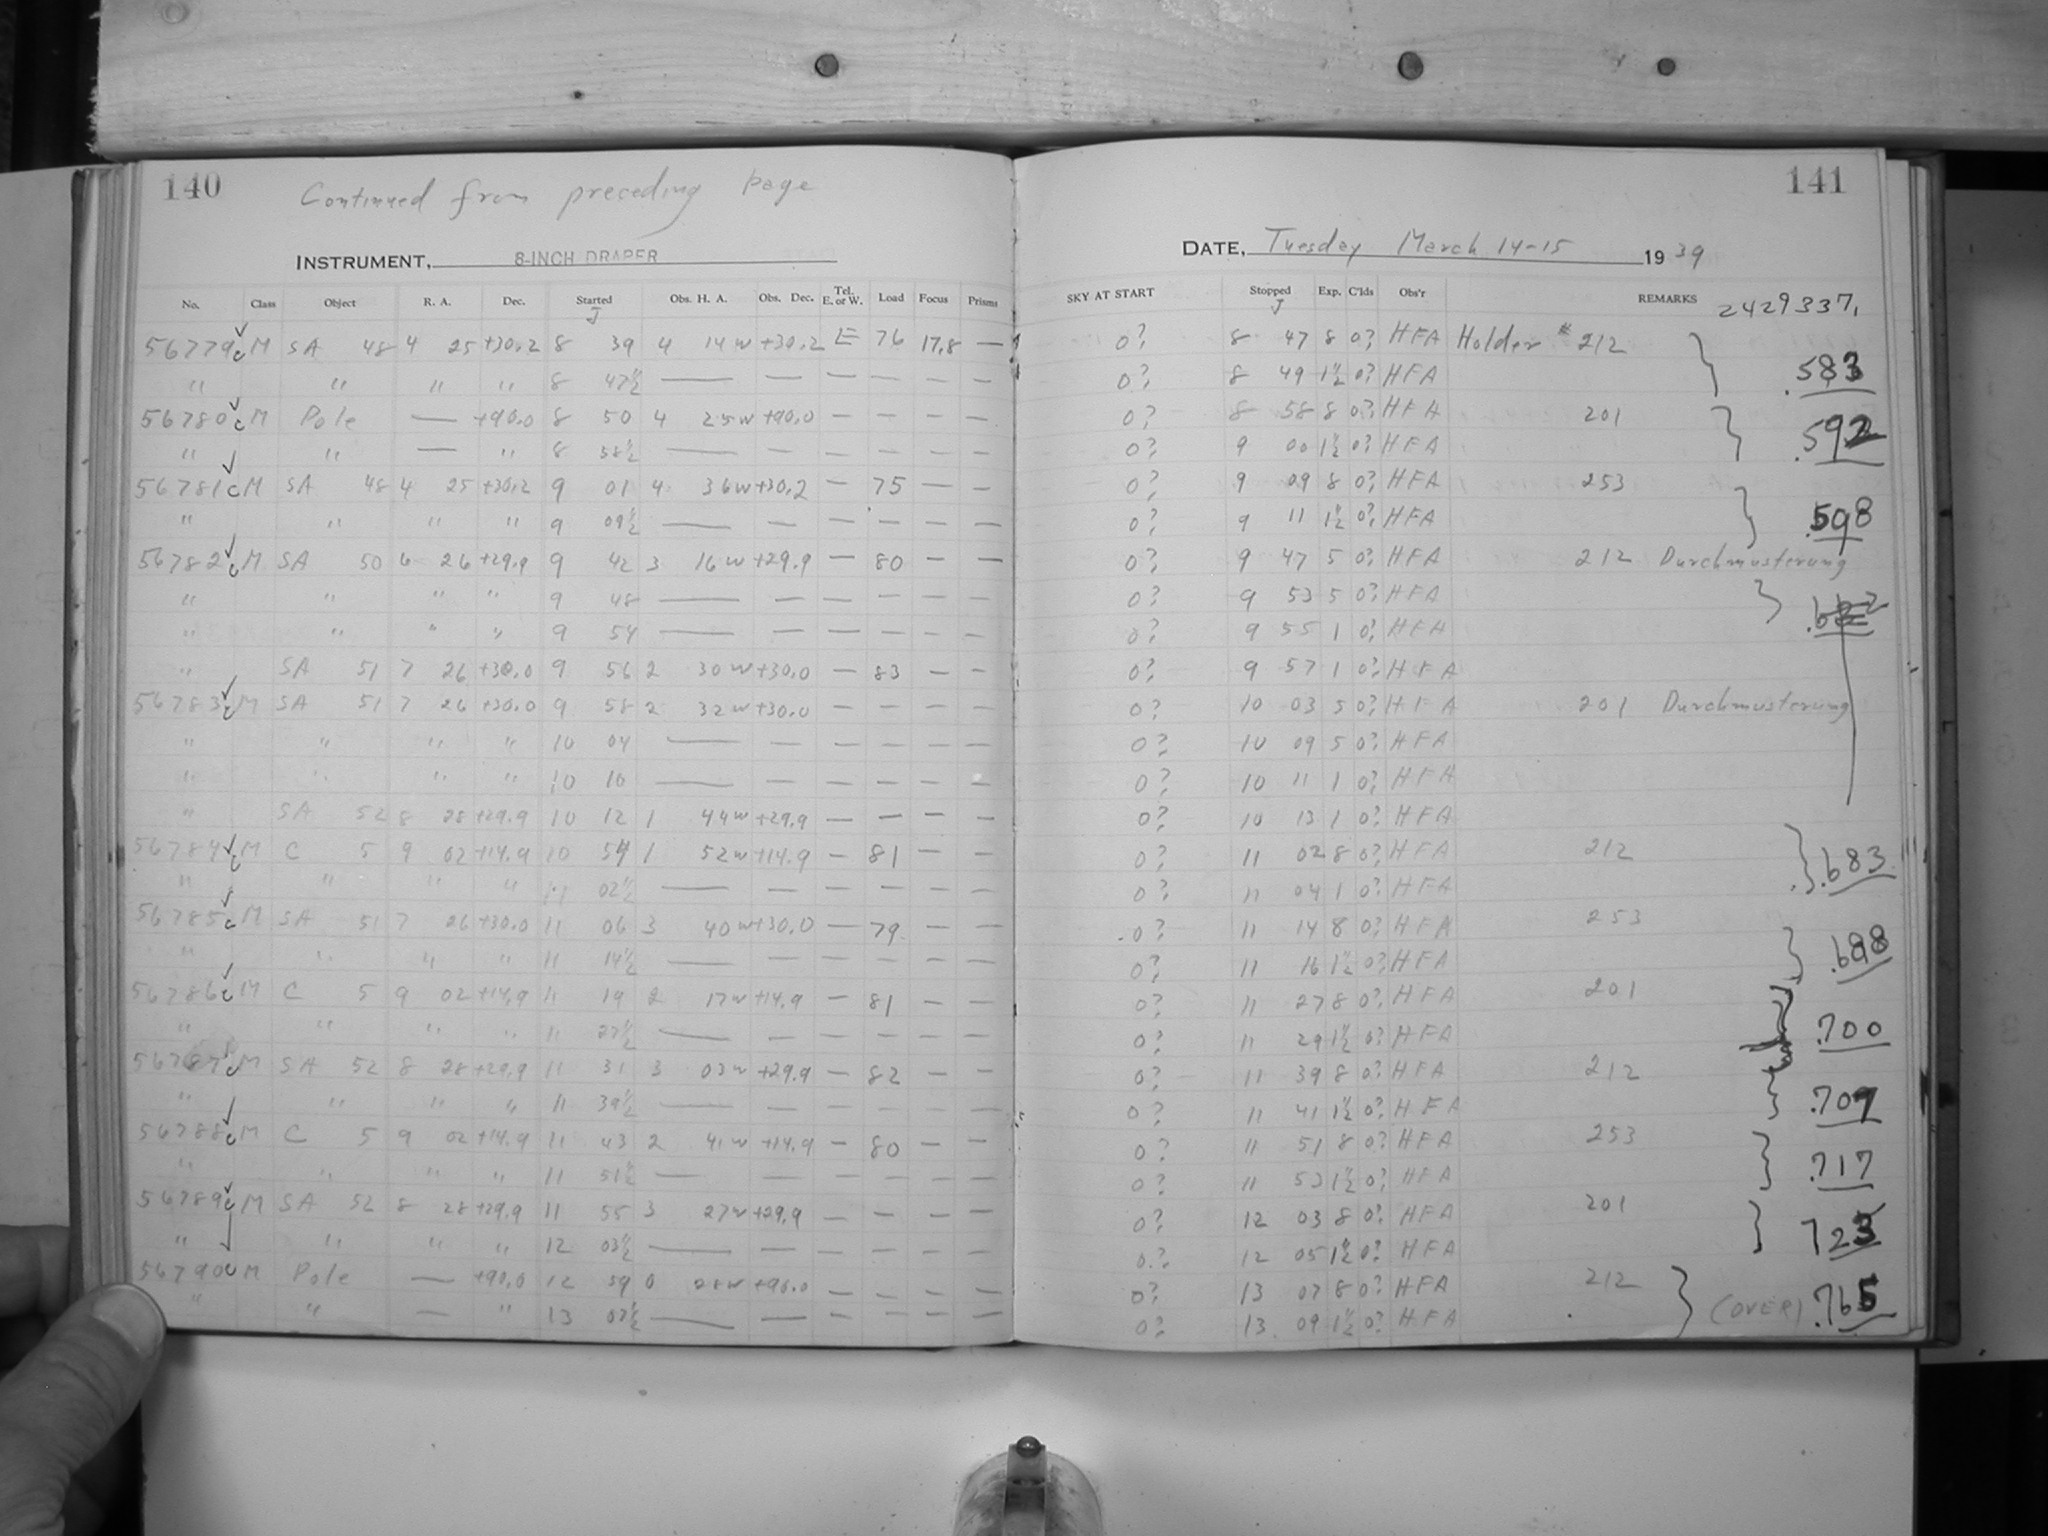 140
Continued from preceding page
INSTRUMENT, 8-INCH DRAPER
No. Class Object R. A. Dec. Started Obs. H. A. Obs. Dec. Tel. E. or W. Load Focus Prisms
J
56779 c M SA 48 4 25 +30.2 8 39 4 14w +30.2 E 76 17.8 —
" " " " 8 47½ — — — — — —
56780 c M Pole — +90.0 8 50 4 25w +90.0 — — — —
" " — " 8 58½ — — — — — —
56781 c M SA 48 4 25 +30.2 9 01 4 36w +30.2 — 75 — —
" " " " 9 09½ — — — — — —
56782 c M SA 50 6 26 +29.9 9 42 3 16w +29.9 — 80 — —
" " " " 9 48 — — — — — —
" " " " 9 54 — — — — — —
" SA 51 7 26 +30.0 9 56 2 30w +30.0 — 83 — —
56783 c M SA 51 7 26 +30.0 9 58 2 32w +30.0 — — — —
" " " " 10 04 — — — — — —
" " " " 10 10 — — — — — —
" SA 52 8 28 +29.9 10 12 1 44w +29.9 — — — —
56784 c M C 5 9 02 +14.9 10 54 1 52w +14.9 — 81 — —
" " " " 11 02½ — — — — — —
56785 c M SA 51 7 26 +30.0 11 06 3 40w +30.0 — 79 — —
" " " " 11 14½ — — — — — —
56786 c M C 5 9 02 +14.9 11 19 2 17w +14.9 — 81 — —
" " " " 11 27½ — — — — — —
56787 c M SA 52 8 28 +29.9 11 31 3 03w +29.9 — 82 — —
" " " " 11 39½ — — — — — —
56788 c M C 5 9 02 +14.9 11 43 2 41w +14.9 — 80 — —
" " " " 11 51½ — — — — — —
56789 c M SA 52 8 28 +29.9 11 55 3 27w +29.9 — — — —
" " " " 12 03½ — — — — — —
56790 c M Pole — +90.0 12 59 0 28w +90.0 — — — —
" " — " 13 07½ — — — — — —
141
DATE, Tuesday March 14-15 1939
SKY AT START Stopped Exp. C'lds Obs'r REMARKS 2429337.
J
0? 8 47 8 0? HFA Holder # 212
0? 8 49 1½ 0? HFA .583
0? 8 58 8 0? HFA 201
0? 9 00 1½ 0? HFA .592
0? 9 09 8 0? HFA 253
0? 9 11 1½ 0? HFA .598
0? 9 47 5 0? HFA 212 Durchmusterung
0? 9 53 5 0? HFA
0? 9 55 1 0? HFA
0? 9 57 1 0? HFA
0? 10 03 5 0? HFA 201 Durchmusterung
0? 10 09 5 0? HFA
0? 10 11 1 0? HFA
0? 10 13 1 0? HFA
0? 11 02 8 0? HFA 212 .683
0? 11 04 1 0? HFA
0? 11 14 8 0? HFA 253
0? 11 16 1½ 0? HFA .688
0? 11 27 8 0? HFA 201
0? 11 29 1½ 0? HFA .700
0? 11 39 8 0? HFA 212
0? 11 41 1½ 0? HFA .709
0? 11 51 8 0? HFA 253
0? 11 53 1½ 0? HFA .717
0? 12 03 8 0? HFA 201
0? 12 05 1½ 0? HFA 723
0? 13 07 8 0? HFA 212
0? 13 09 1½ 0? HFA (OVER) .765